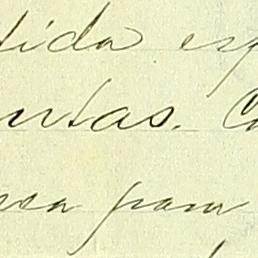 tida esp
urtas. Co
esa para